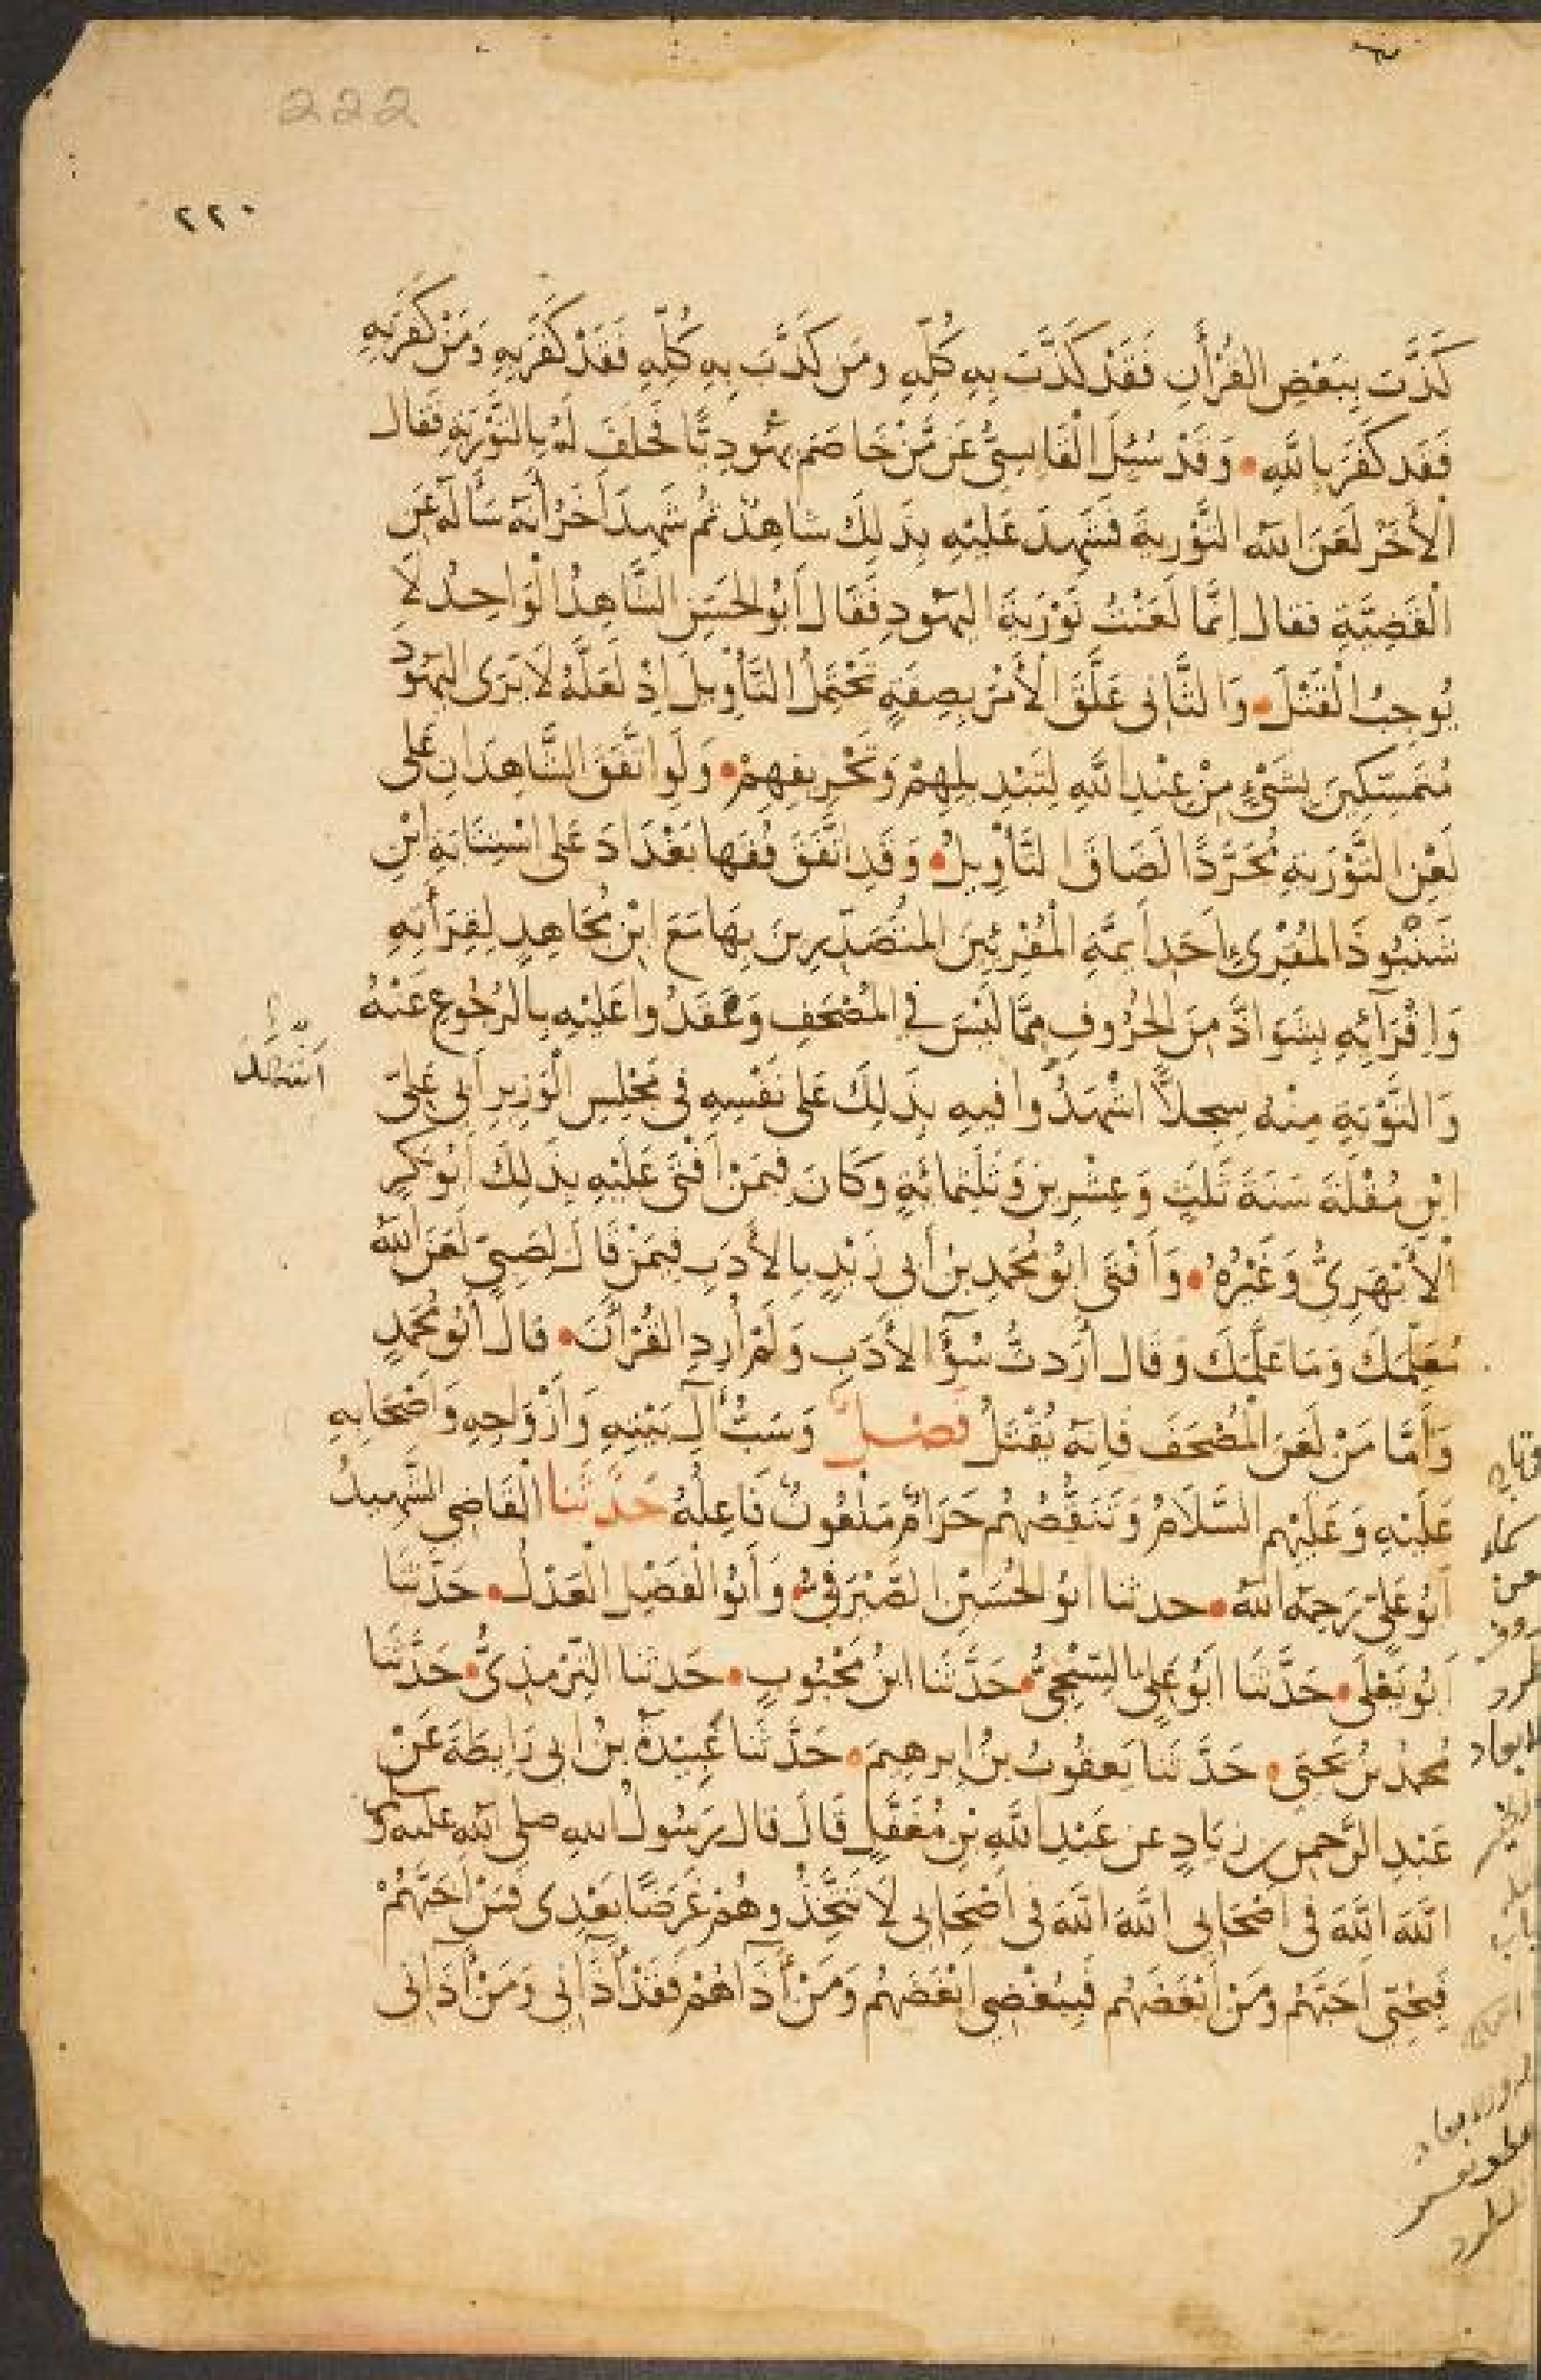 222
٢٢٠
كَذَّبَ بِبَعْضِ الْقُرْأٰنِ فَقَدْ كَذَّبَ بِهِ كُلِّهِ وَمَن كَذَّبَ بِهِ كُلِّهِ فَقَدْ كَفَرَ بِهِ وَمَنْ كَفَرَ بِهِ
فَقَد كَفَرَ بِاللهِ • وَقَدْ سُئِلَ الْقَابِسِيُّ عَن مَّنْ خَاصَمَ يَهُودِيًّا فَحَلَفَ لَهُ بِالتَّوْرَيةِ فَقَالَ
الْأٰخَرُ لَعَنَ اللهُ التَّوْرٰيةَ فَشَهِدَ عَلَيْهِ بِذَلِكَ شاهِدٌ ثُمَّ شَهِدَ اٰخَرُ أَنَّهُ سَأَلَهُ عَنِ
الْقَضِيَّةِ فقال اِنَّمَا لَعَنْتُ تَوْرَيةَ الْيَهُودِ فَقَالَ أَبُو الحَسَنِ الشَّاهِدُ الْوَاحِدُ لَا
يُوجِبُ الْقَتْلَ • وَالثَّانِى عَلَّقَ الْأَمْرَ بِصِفَةٍ تَحْتَمِلُ التَّأْوِيلَ اِذْ لَعَلَّهُ لَا يَرَى الْيَهُودَ
مُتَمَسِّكِينَ بِشَىْءٍ مِنْ عِنْدِ اللهِ لِتَبْدِيلِهِمْ وَتَحْرِيفِهِمْ • وَلَوِ اتَّفَقَ الشَّاهِدَانِ عَلى
لَعْنِ التَّوْرَيةِ مُجَرَّدًا لَضَاقَ التَّأْوِيلُ • وَقَدِ اتَّفَقَ فُقَهَا بَغْدَادَ عَلى اسْتِتَابَةِ ابْنِ
شَنْبُوذَ الْمُقْرِىءِ اَحَدِ أَيِمَّةِ الْمُقْرِئِينَ الْمُتَصَدِّرِينَ بِهَا مَعَ ابْنِ مُجَاهِدٍ لِقِرَأَتِهِ
وَاِقْرَآئِهِ بِشَوَاذَّ مِنَ الْحُرُوفِ مِمَّا لَيْسَ فِي الْمُصْحَفِ وَعَقَدُوا عَلَيْهِ بِالرُّجُوعِ عَنْهُ
وَالتَّوْبَةِ مِنْهُ سِجِلًّا اشْهَدُوا فِيهِ بِذَلِكَ عَلى نَفْسِهِ فى مَجْلِسِ الْوَزِيرِ أَبِى عَلِىِّ
ابْنِ مُقْلَةَ سَنَةَ ثَلٰثٍ وَعِشْرِينَ وَثَلٰثِمِائَةٍ وَكَانَ فِيمَنْ اَفْتَى عَلَيْهِ بِذَلِكَ اَبُو بَكْرٍ
الْأَبْهَرِىُّ وَغَيْرُهُ • وَأَفْتَى ابُو مُحَمَّدِ بنُ أَبى زَيْدٍ بِالْأَدَبِ فِيمَنْ قَالَ لِصَبِىٍّ لَعَنَ اللهُ
مُعَلِّمَكَ وَمَا عَلَّمَكَ وَقَالَ أَرَدتُ سُوْٓءَ الْأَدَبِ وَلَمْ أُرِدِ الْقُرْأٰنَ • قال أَبُو مُحَمَّدٍ
وَأَمَّا مَنْ لَعَنَ الْمُصْحَفَ فَاِنَّهُ يُقْتَلُ فَصْلٌ وَسَبُّ آلِ بَيْتِهِ وَاَزْوَاجِهِ وَاَصْحَابِهِ
عَلَيْهِ وَعَلَيْهِم السَّلَامُ وَتَنَقُّصُهُم حَرَامٌ مَلْعُونٌ فَاعِلُهُ حَدَّثَنَا الْقَاضِى الشَّهِيدُ
اَبُو عَلِىٍّ رَحِمَهُ اللهُ • حدثنا ابُو الحُسَيْنِ الصَّيْرَفىُّ • وَأَبُو الْفَضْلِ الْعَدْلُ • حَدَّثَنَا
اَبُو يَعْلَى • حَدَّثَنَا ابُو عَلِىٍّ السِّنْجِىُّ • حَدَّثَنَا ابْنُ مَحْبُوبٍ • حَدثنا التِّرْمِذِىُّ • حَدَّثَنَا
مُحمدُ بْنُ يَحْيَى • حَدَّثَنَا يَعقُوبُ بنُ اِبرهِيمَ • حَدَّثَنا عُبَيْدَةُ بنُ ابى رَايِطَةَ عَنْ
عَبْدِ الرَّحمنِ بن زِيَادٍ عن عَبْدِ اللهِ بْنِ مُغَفَّلٍ قَالَ قال رَسُولُ اللهِ صلى الله عليه و
اللهَ اللهَ فى اَصْحَابِى اللهَ اللهَ فى اَصْحَابِى لَا تَتَّخِذُوهُمْ غَرَضًا بَعْدِى فَمَنْ اَحَبَّهُمْ
فَبِحُبِّى اَحَبَّهُمْ وَمَنْ اَبْغَضَهُم فَبِبُغْضِى ابْغَضَهُم وَمَنْ أَذَاهُمْ فَقَدْ أَذَانِى وَمَنْ أذَانِى
اشهد